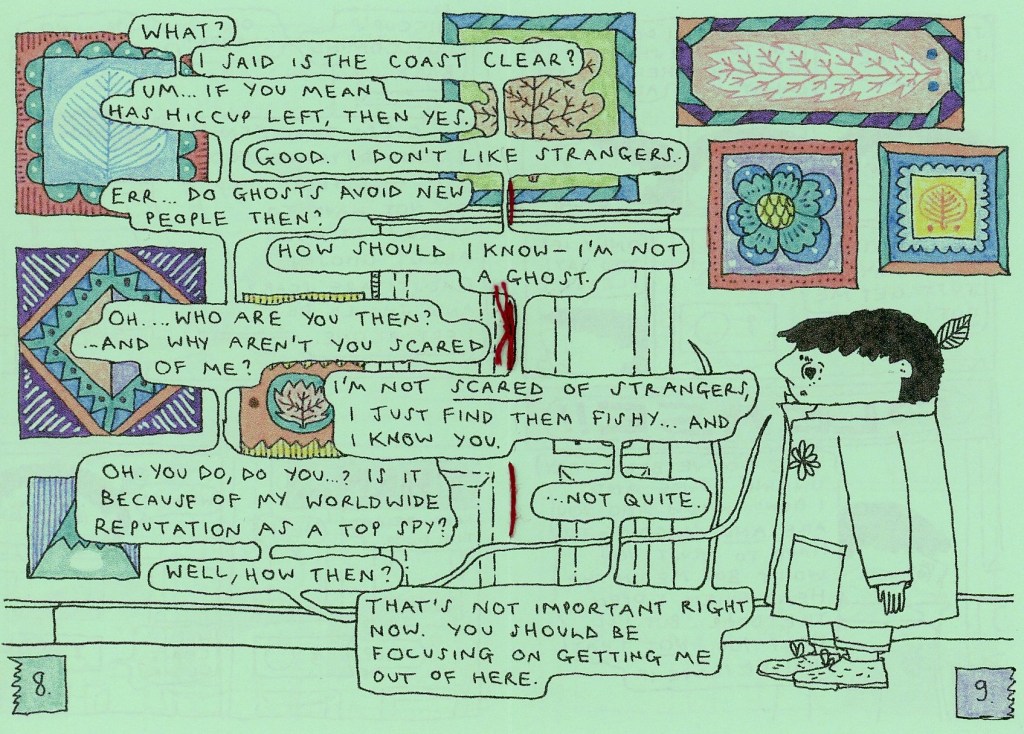 WHAT?
I SAID IS THE COAST CLEAR?
UM... IF YOU MEAN
HAS HICCUP LEFT, THEN YES.
GOOD. I DON'T LIKE STRANGERS..
ERR... DO GHOSTS AVOID NEW
PEOPLE THEN?
HOW SHOULD I KNOW - I'M NOT
A GHOST.
OH.... WHO ARE YOU THEN?
...AND WHY AREN'T YOU SCARED
OF ME?
I'M NOT SCARED OF STRANGERS,
I JUST FIND THEM FISHY... AND
I KNOW YOU.
OH. YOU DO, DO YOU...? IS IT
BECAUSE OF MY WORLDWIDE
REPUTATION AS A TOP SPY?
...NOT QUITE.
WELL, HOW THEN?
THAT'S NOT IMPORTANT RIGHT
NOW. YOU SHOULD BE
FOCUSING ON GETTING ME
OUT OF HERE.
8.
9.